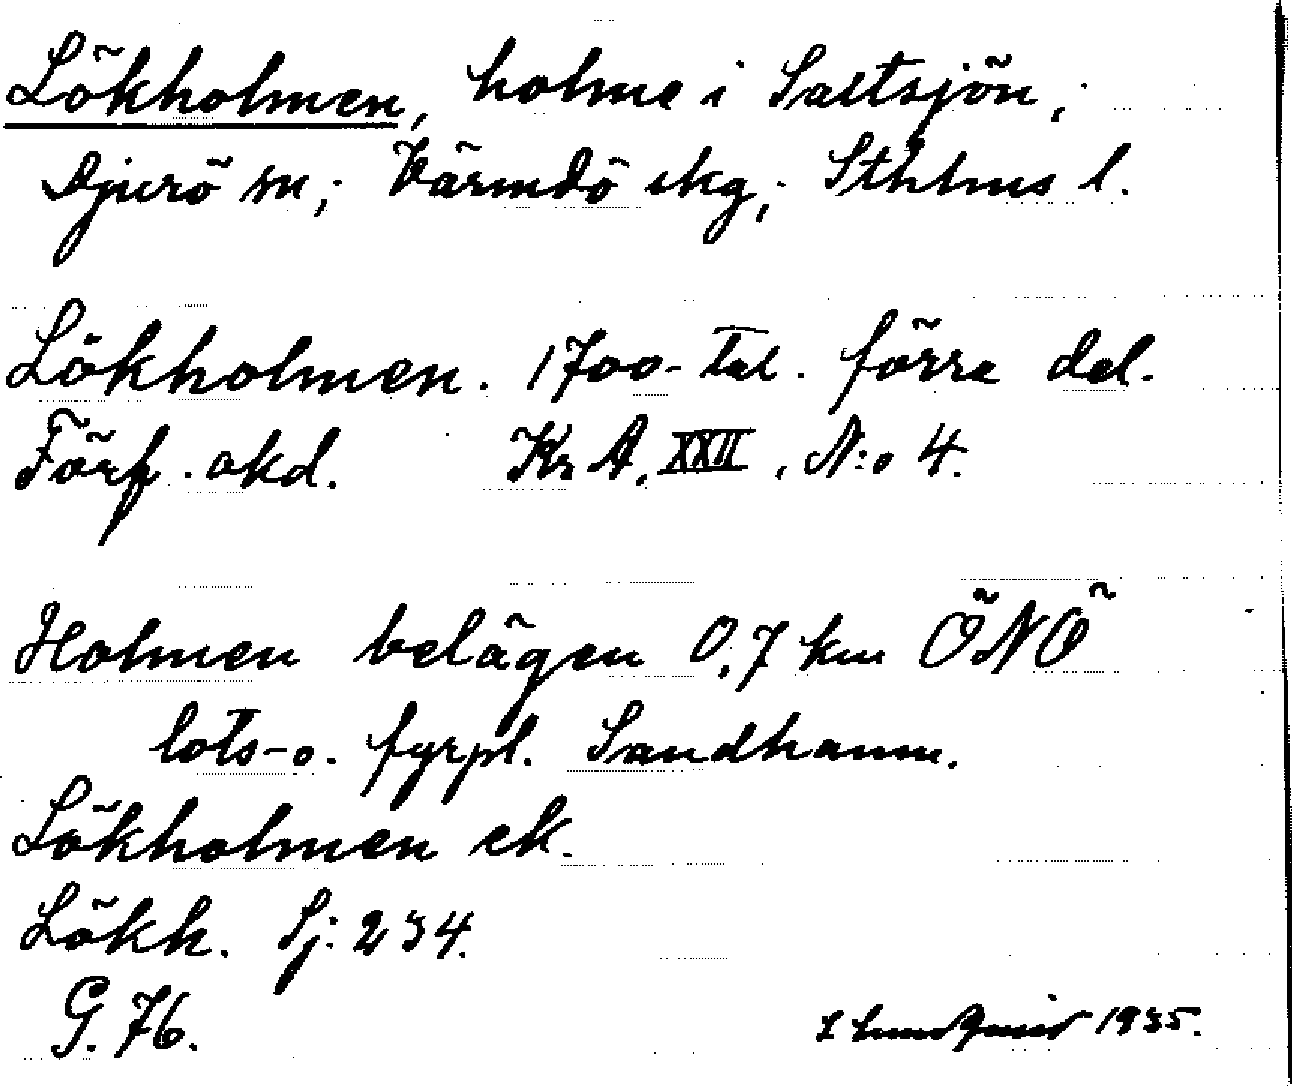 Lökholmen, holme i Saltsjön,
Djurö sn; Värmdö skg, Sthlms l.
Lökholmen. 1700-tal. förra del.
Förf. okd. Kr A, XXII, N:o 4.
Holmen belägen 0,7 km ÖNÖ
lots-o. fyrpl. Sandhamn.
Lökholmen ek.
Lökh. Sj: 234.
G. 76.
Lundquist 1935.